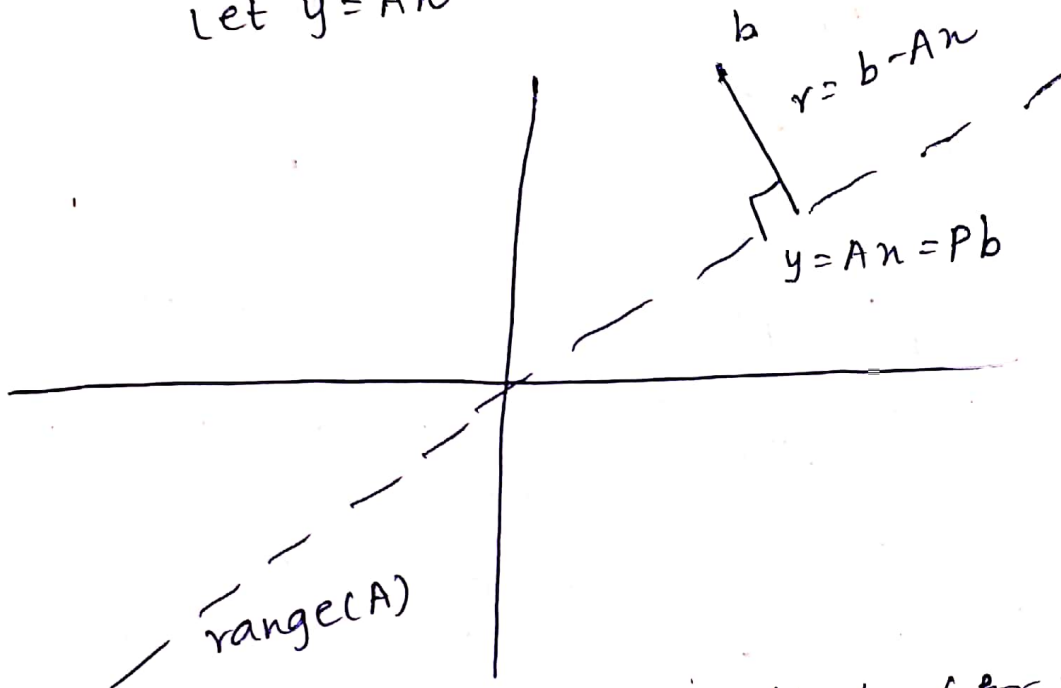 Let y = Ax
b
r = b - Ax
y = Ax = Pb
range(A)